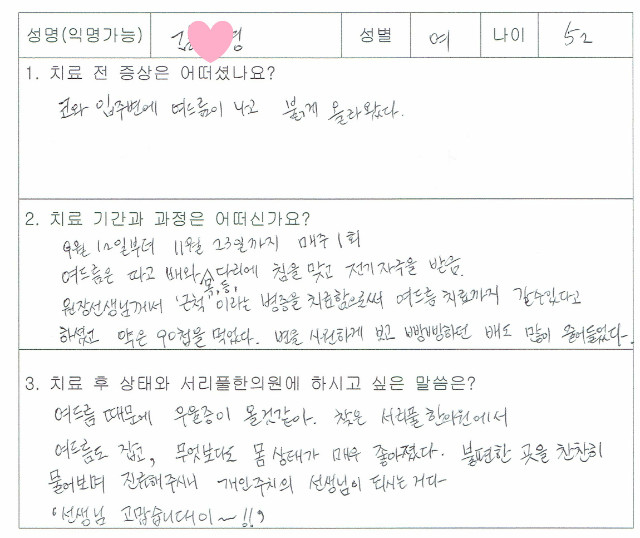 성명(익명가능) 김 영 성별 여 나이 52
1. 치료 전 증상은 어떠셨나요?
코와 입주변에 여드름이 나고 붉게 올라왔다.
2. 치료 기간과 과정은 어떠신가요?
9월 12일부터 11월 23일까지 매주 1회
여드름은 따고 배와 목, 등, 다리에 침을 맞고 전기자극을 받음.
원장선생님께서 '근척'이라는 병증을 치료함으로써 여드름 치료까지 갈수있다고
하셨고 약은 90첩을 먹었다. 변을 시원하게 보고 빵빵하던 배도 많이 줄어들었다.
3. 치료 후 상태와 서리풀한의원에 하시고 싶은 말씀은?
여드름 때문에 우울증이 올것같아. 찾은 서리풀한의원에서
여드름도 잡고, 무엇보다도 몸 상태가 매우 좋아졌다. 불편한 곳을 찬찬히
물어보며 진료해주시니 개인주치의 선생님이 되시는 거다
'선생님 고맙습니대이~!!'